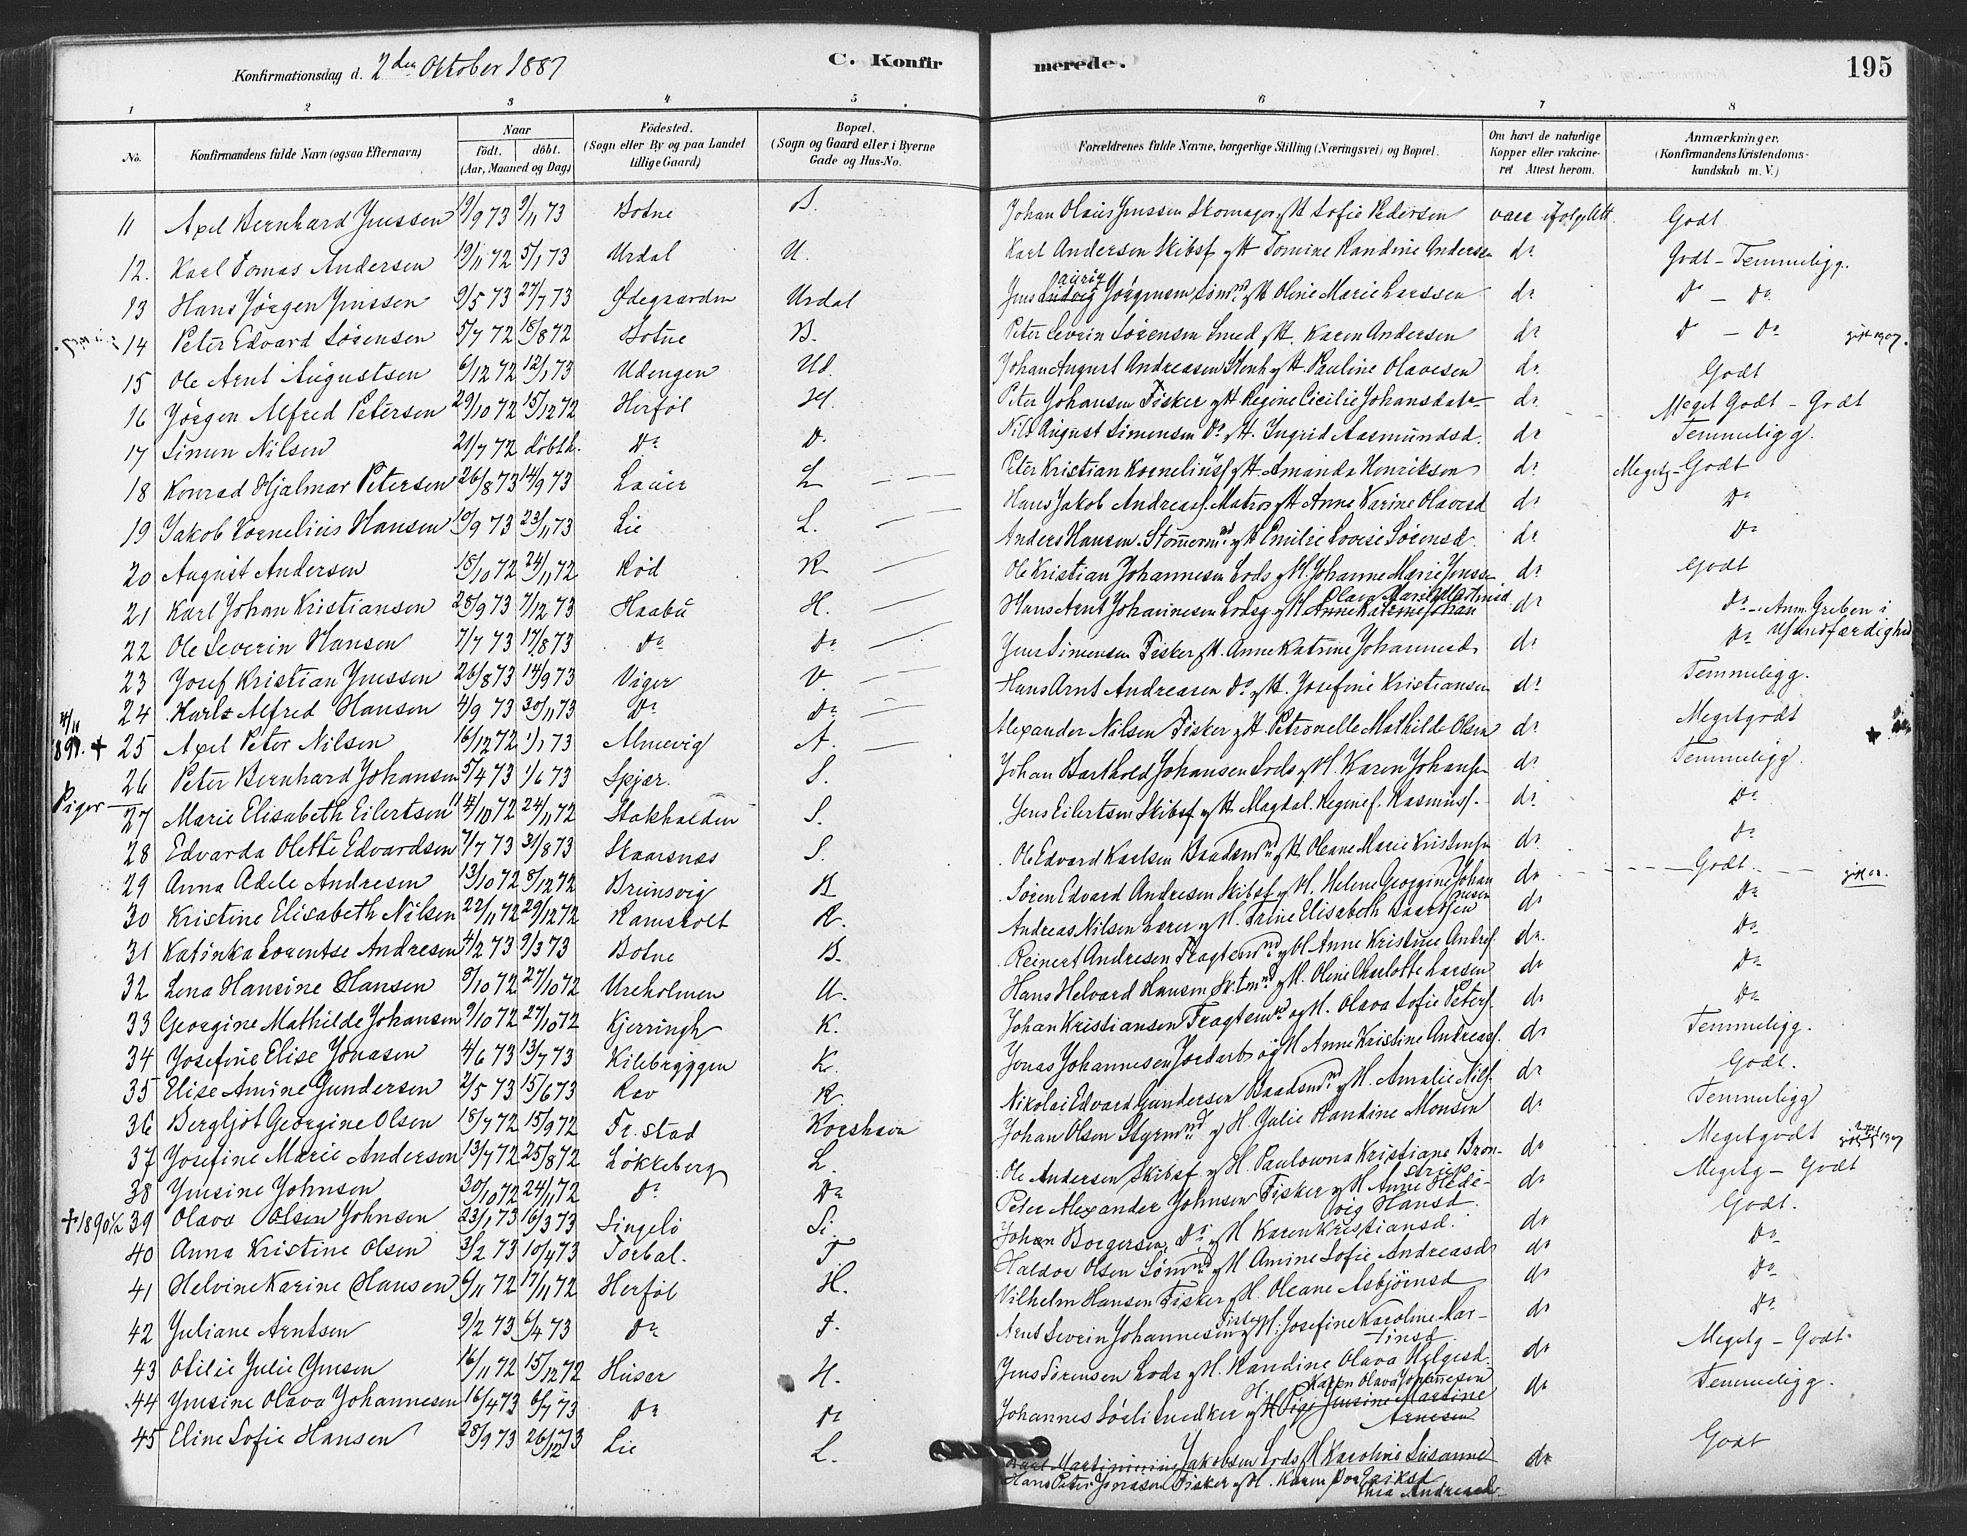 Konfirmationsdag d. 2den Oktober 1887
C. Konfirmerede.
195
1 2 3 4 5 6 7 8
No. Konfirmandens fulde Navn (ogsaa Efternavn) Naar født. døbt. (Aar, Maaned og Dag) Fødested. (Sogn eller By og paa Landet tillige Gaard) Bopæl. (Sogn og Gaard eller i Byerne Gade og Hus-No. Forældrenes fulde Navne, borgerlige Stilling (Næringsvei) og Bopæl. Om havt de naturlige Kopper eller vakcineret Attest herom. Anmærkninger. (Konfirmandens Kristendomskundskab m. V.)
11 Axel Bernhard Jenssen 19/9 73 9/11 73 Botne B. Johan Olaus Jenssen Skomager & H Sofie Pedersen vacc ifølge Att. Godt
12. Karl Tomas Andersen 19/11 72 5/1 73 Urdal U. Karl Andersen Skibsf & H Tomine Randine Andersen do Godt - Temmeligg.
13 Hans Jørgen Jenssen 9/5 73 27/7 73 Ødegaarden Urdal Jens Jørgensen Sømd & H Oline Marie Larssen do Do - Do
14 Peter Edvard Sørensen 5/7 72 18/8 72 Botne B. Peter Severin Sørensen Smed & H. Karen Andersen do Do - Do gift 1907.
15 Ole Arnt Augustsen 6/12 72 12/1 73 Udengen Ud. Johan August Andreasen Stenh & H Pauline Olavesen do Godt
16 Jørgen Alfred Petersen 29/10 72 15/12 72 Herføl H. Peter Johansen Fisker & H Regine Cicilie Johansdatr do Meget Godt - Godt
17 Simon Nilsen 21/7 72 døbt h. Do D. Nils August Simensen Do & H. Ingrid Aasmundsd. do Temmeligg.
18 Konrad Hjalmar Petersen 26/8 73 14/9 73 Lauer L Peter Kristian Korneliusf & H. Amanda Henriksen do Megetg - Godt
19 Jakob Kornelius Hansen 19/9 73 23/11 73 Lie L. Hans Jakob Andreasf. Matros & H Anne Karine Olavesd do Do
20 August Andersen 18/10 72 24/11 72 Rød R Anders Hansen Stømermd & H Emilie Lovise Sørensd. do Do
21 Karl Johan Kristiansen 28/9 73 7/12 73 Haabu H. Ole Kristian Johannesen Lods & H. Johanne Marie Jenssen do Godt
22 Ole Severin Hansen 7/7 73 17/8 73 Do Do Hans Arnt Johannesen Lodsg & H do Do - Anm. Greben i Usandfærdighed
23 Josef Kristian Jenssen 26/8 73 14/9 73 Viger V. Jens Simensen Fisker & H. Anne Katrine Johannesd do Do
24 Karl Alfred Hansen 4/9 73 30/11 73 Do Do Hans Arnt Andreasen Do & H. Josefine Kristiansen do Temmeligg.
4/11 899. + 25 Axel Peter Nilsen 16/12 72 1/1 73 Almevig A. Alexander Nilsen Fisker & H Petronelle Mathilde Olsen do Megetgodt
26 Peter Bernhard Johansen 5/4 73 1/6 73 Spjær. S. Johan Barthold Johansen Lods & H. Karen Johansen do Temmeligg.
Piger 27 Marie Elisabeth Eilertsen 14/10 72 24/11 72 Stokholden S. Jens Eilertsen Skibsf & H Magdal. Reginef. Rasmusf. do Do
28 Edvarda Olette Edvardsen 7/7 73 31/8 73 Skaarsnæs S. Ole Edvard Karlsen Baadsmd & H Oleane Marie Kristensen do Do
29 Anna Adele Andresen 13/10 72 8/12 72 Brunsvig B Søren Edvard Andresen Skibsf & H. Helene Georgine Johannesen do Godt
30 Kristine Elisabeth Nilsen 22/11 72 29/12 72 Ramsholt R. Andreas Nilsen Lærer & H. Trine Elisabeth Baardsen do Do
31 Katinka Lorentse Andresen 4/2 73 9/3 73 Botne B. Reinert Andresen Fragtemd & H Anne Kristine Andref. do Do
32 Lena Hansine Hansen 8/10 72 27/10 72 Ureholmen U. Hans Helvard Hansen Sk.tmd & H. Oline Charlotte Larsen do Do
33 Georgine Mathilde Johansen 9/10 72 27/10 72 Kjerringh K. Johan Kristiansen Fragtemd og H. Olava Sofie Petersf. do Do
34 Josefine Elise Jonasen 4/6 73 13/7 73 Kilebryggen K. Jonas Johannesen Jordarb og H Anne Kristine Andreasf. do Temmeligg.
35 Elise Amine Gundersen 2/5 73 15/6 73 Rev R. Nikolai Edvard Gundersen Baadsmd & H. Amalie Nilsf. do Godt.
36 Bergljot Georgine Olsen 18/7 72 15/9 72 Fr.stad Korshavn Johan Olsen Styrmd & H. Julie Randine Monsen do Temmeligg
37 Josefine Marie Andersen 13/7 72 25/8 72 Løkkeberg L. Ole Andersen Skibsf. & H. Paulowna Kristiane Bron- do Megetgodt
38 Jensine Johnsen 30/10 72 24/11 72 Do Do Peter Alexander Johnsen Fisker & H Anne Hedevig Hansd. do Megetg - Godt
+ 1890 39 Olava Olsen Johnsen 23/1 73 16/3 73 Singelø Si. Johan Borgersen Do & H Karen Kristiansd. do Godt.
40 Anna Kristine Olsen 3/2 73 10/4 73 Torbal. T Haldor Olsen Sømd & H Amine Sofie Andreasd do Do
41 Helvine Karine Hansen 6/11 72 17/11 72 Herføl H. Vilhelm Hansen Fisker & H. Oleane Asbjørnsd do Do
42 Juliane Arntsen 9/2 73 6/4 73 Do D. Arnt Severin Johannesen Fisker & H. Josefine Karoline Martinsd. do Do
43 Otilie Julie Jensen 16/11 72 15/12 72 Huser H. Jens Sørensen Lods & H. Randine Olava Helgesd. do Megetg - Godt.
44 Jensine Olava Johannesen 16/4 73 6/7 73 Do Do Johannes Sørli Snedker & H Karen Olava Johannesen Pige Jensine Martine Arnesen do Temmeligg.
45 Eline Sofie Hansen 28/9 73 26/12 73 Lie L. Jakobsen Lods & H Karoline Susanne Eriksd do Godt
Hans Peter Jonasen Fisker & H. Karen Dorthea Andreasd.